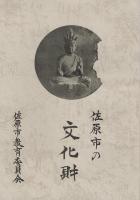 佐原市の
文化財
佐原市教育委員会